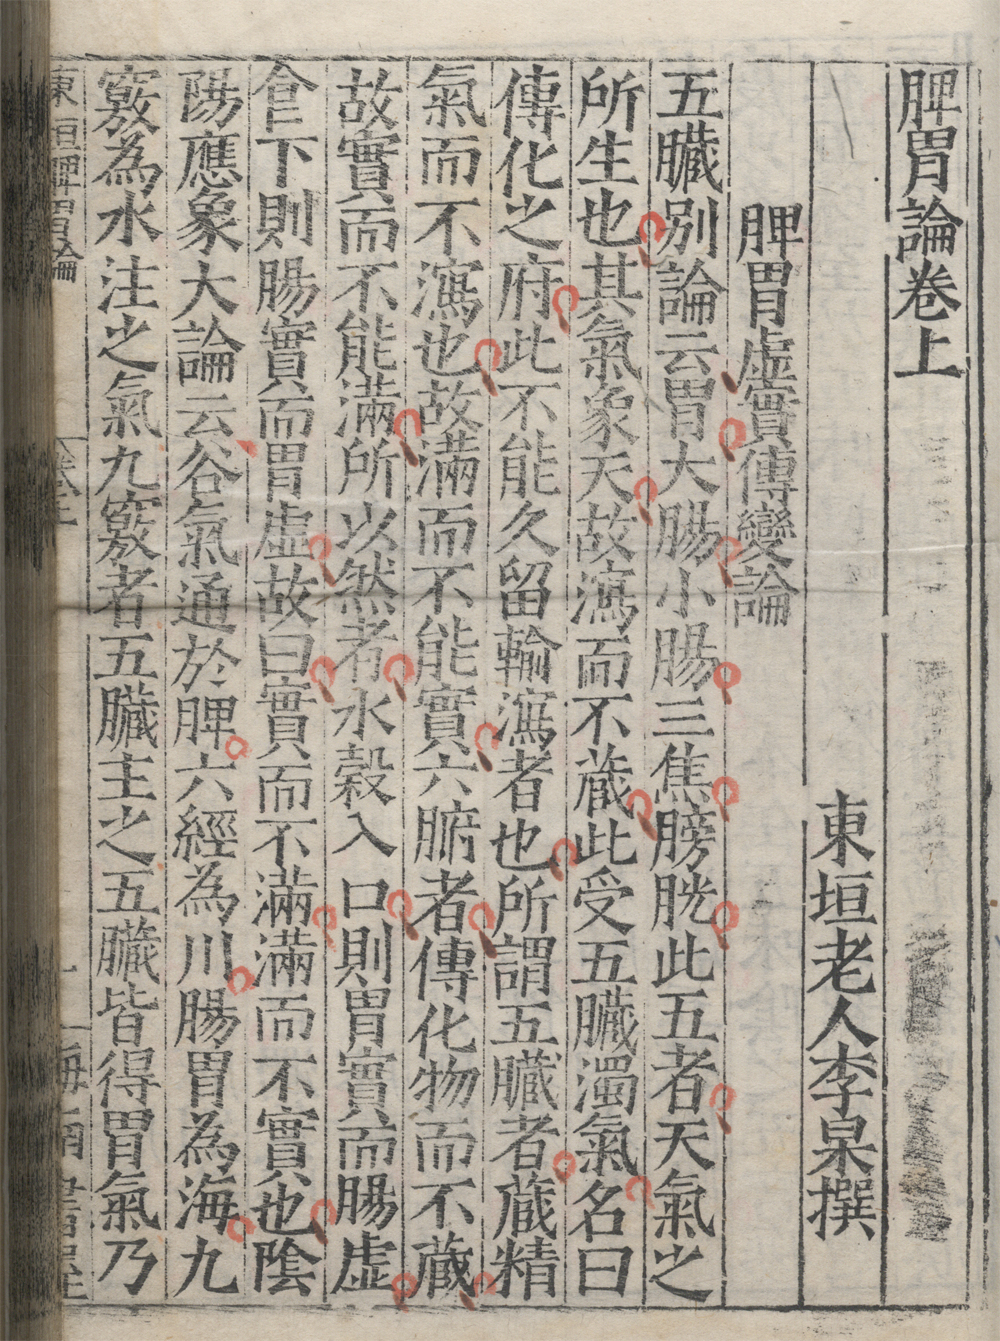 脾胃論卷上
東垣老人李杲撰
脾胃虛實傳變論
五臟別論云胃大腸小腸三焦膀胱此五者天氣之
所生也其氣象天故瀉而不藏此受五臟濁氣名曰
傳化之府此不能久留輸瀉者也所謂五臟者藏精
氣而不瀉也故滿而不能實六腑者傳化物而不藏
故實而不能滿所以然者水穀入口則胃實而腸虛
食下則腸實而胃虛故曰實而不滿滿而不實也陰
陽應象大論云谷氣通於脾六經為川腸胃為海九
竅為水注之氣九竅者五臟主之五臟皆得胃氣乃
東垣脾胃論